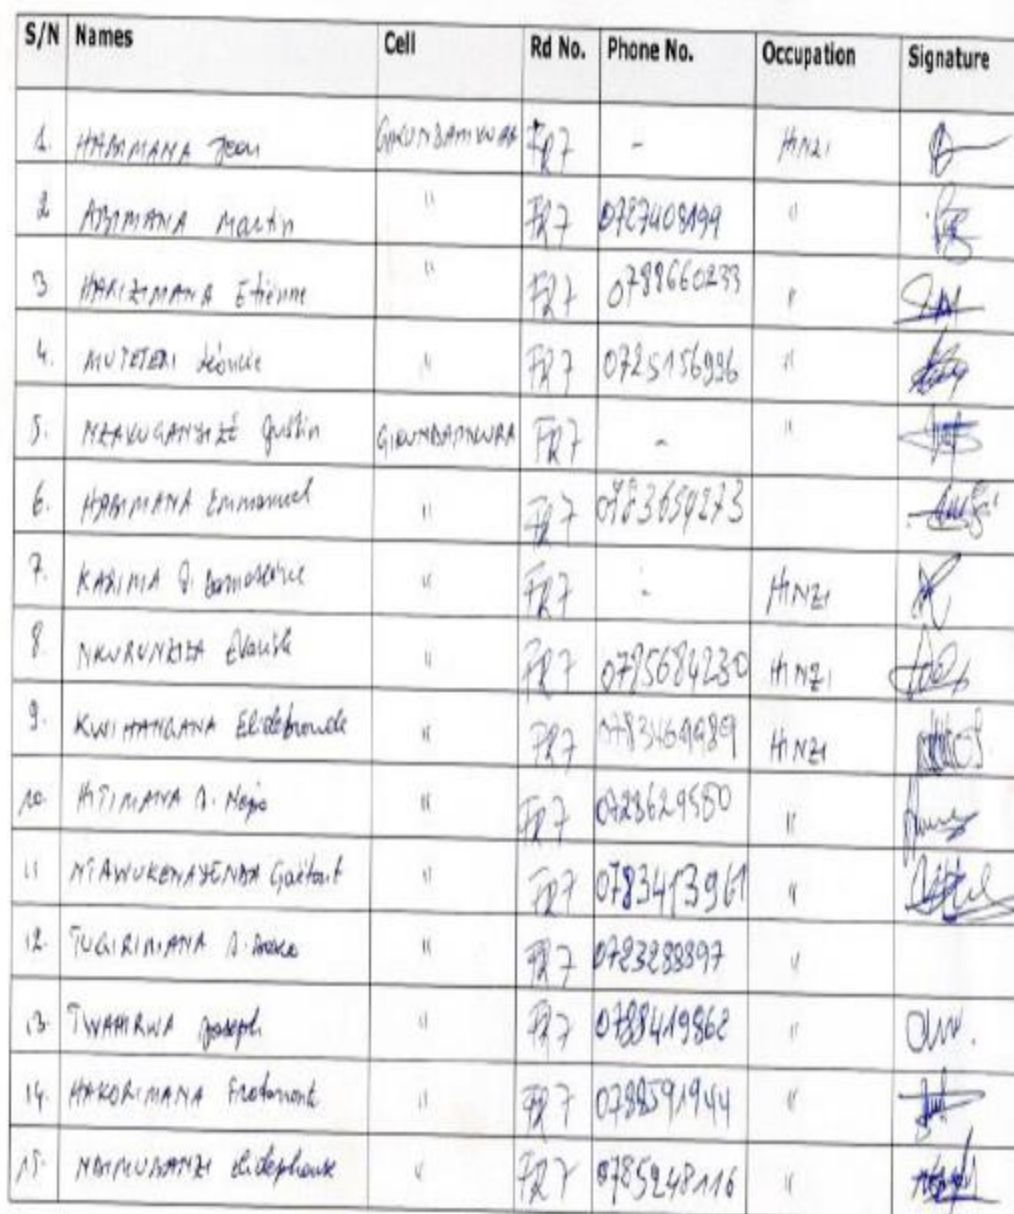 S/N Names Cell Rd No. Phone No. Occupation Signature
1. HABIMANA Jean GIKUNDAMVURA FR7 - HINZI
2 ABIMANA Martin " FR7 "
3 HARIZIMANA Etienne " FR7 0788660233 "
4. MUTETERI Léoncie " FR7 0725156996 "
5. NZAKUGANYIZÉ Justin GIKUNDAMVURA FR7 - "
6. HABIMANA Emmanuel " FR7 0783659273
7. KABIMA J. Damascène " FR7 - HINZI
8. NKURUNZIZA Evariste " FR7 0785684230 HINZI
9. KWIHANGANA " FR7 HINZI
10. HITIMANA J. Nepo " FR7 0728629580 "
11 Gaëtant " FR7 0783413961 "
12. TUGIRIMANA " FR7 0723288897 "
13. TWAHIRWA Joseph " FR7 0788419862 "
14. HAKORIMANA " FR7 0788591944 "
15. " FR7 0785248116 "